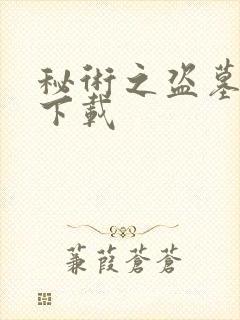 秘術之盗墓
下載
蒹葭蒼蒼